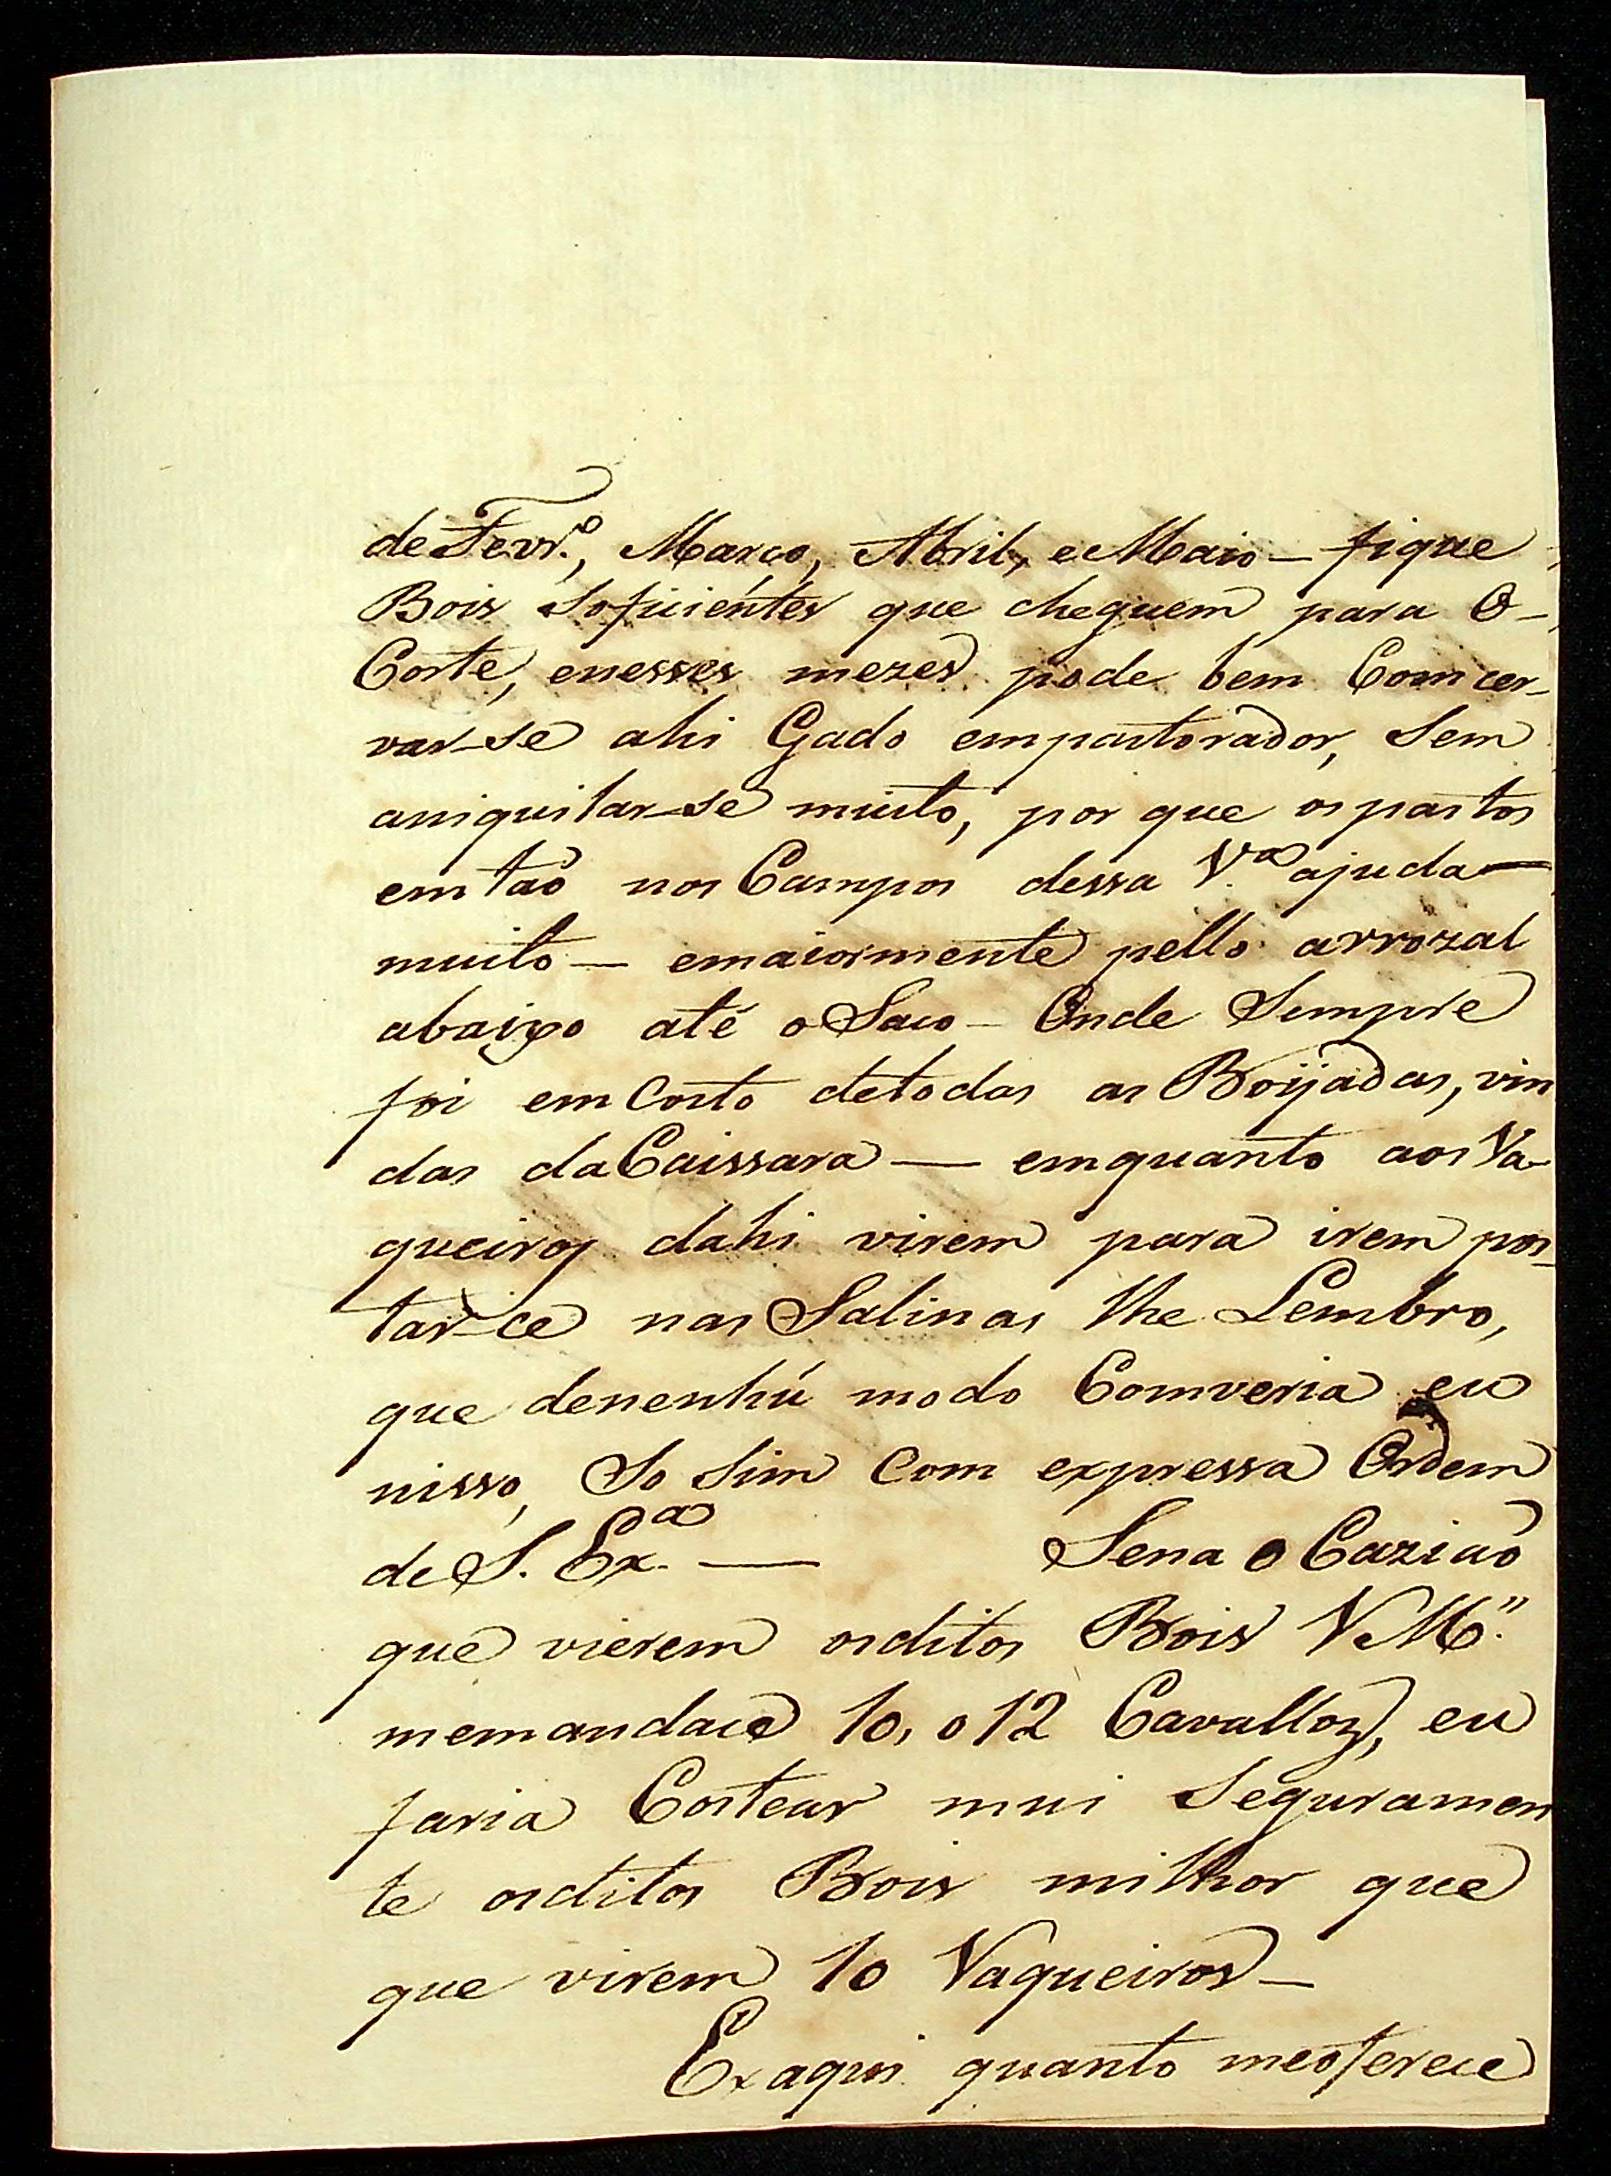 de Fevr.º, Março, Abril, e Maio — fique
Bois Soficiéntes que cheguem para O-
Corte, enesses mezes pode bem Comcer-
var-se ahi Gado empastorador, Sem
aniquilar-se muito, por que os pastos
emtaõ nos Campos dessa V.ª ajuda —
muito — emaiormente pello arrozal
abaixo até o Saco — Onde Sempre
foi emCosto detodas as Boijadas, vin
das daCaissara — emquanto aos Va-
queiros dahi virem para irem pos-
tar-ce nas Salinas lhe Lembro,
que denenhú modo Comveria eu
nisso, So Sim Com expressa Ordem
de S. Ex.ª — Sena o Caziaõ
que vierem osditos Bois VM.''
memandace 10, o 12 Cavallos, eu
faria Costear mui Seguramen
te osditos Bois milhor que
que virem 10 Vaqueiros —
Exaqui quanto meoferece